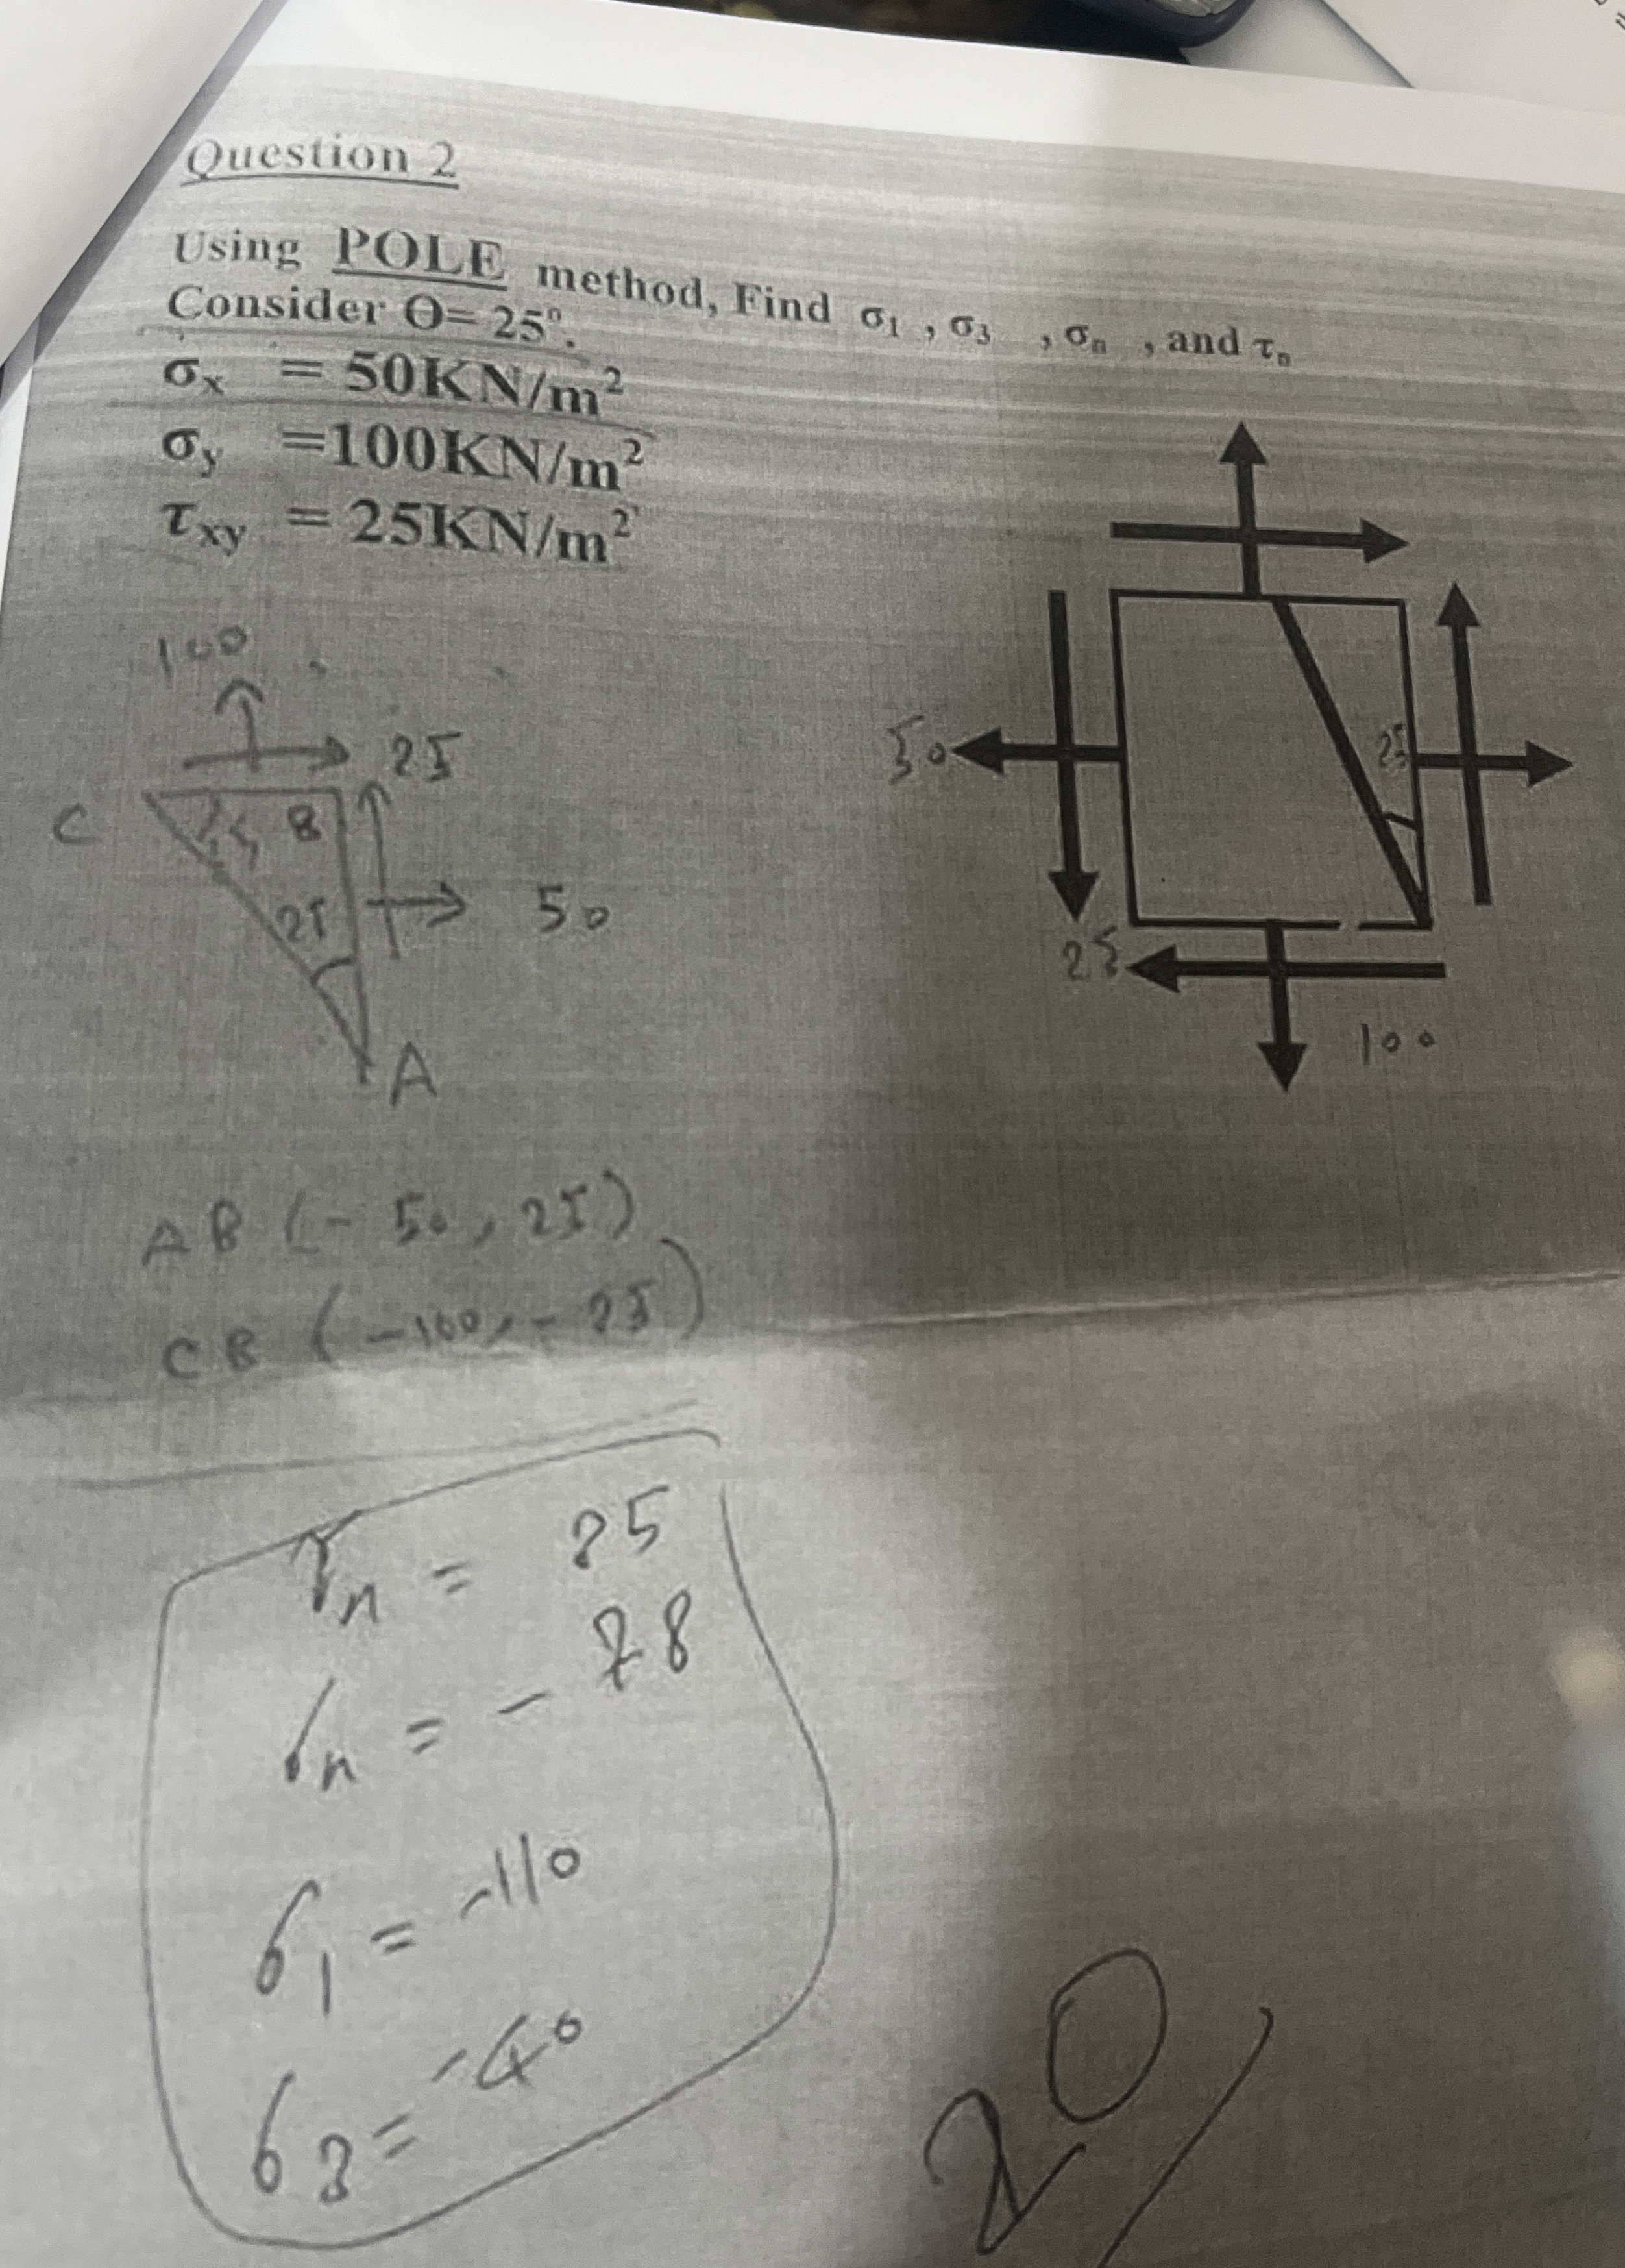 Question 2
Using POLE method, Find σ₁ , σ₃ , σₙ , and τₙ
Consider Θ= 25⁰.
σx = 50KN/m²
σy =100KN/m²
τxy = 25KN/m²
100
25
C
B
25
50
A
50
25
25
100
AB (- 50, 25)
CB (-100, - 25)
τn = 25
σn = - 78
σ1 = -110
σ3 = -40
20